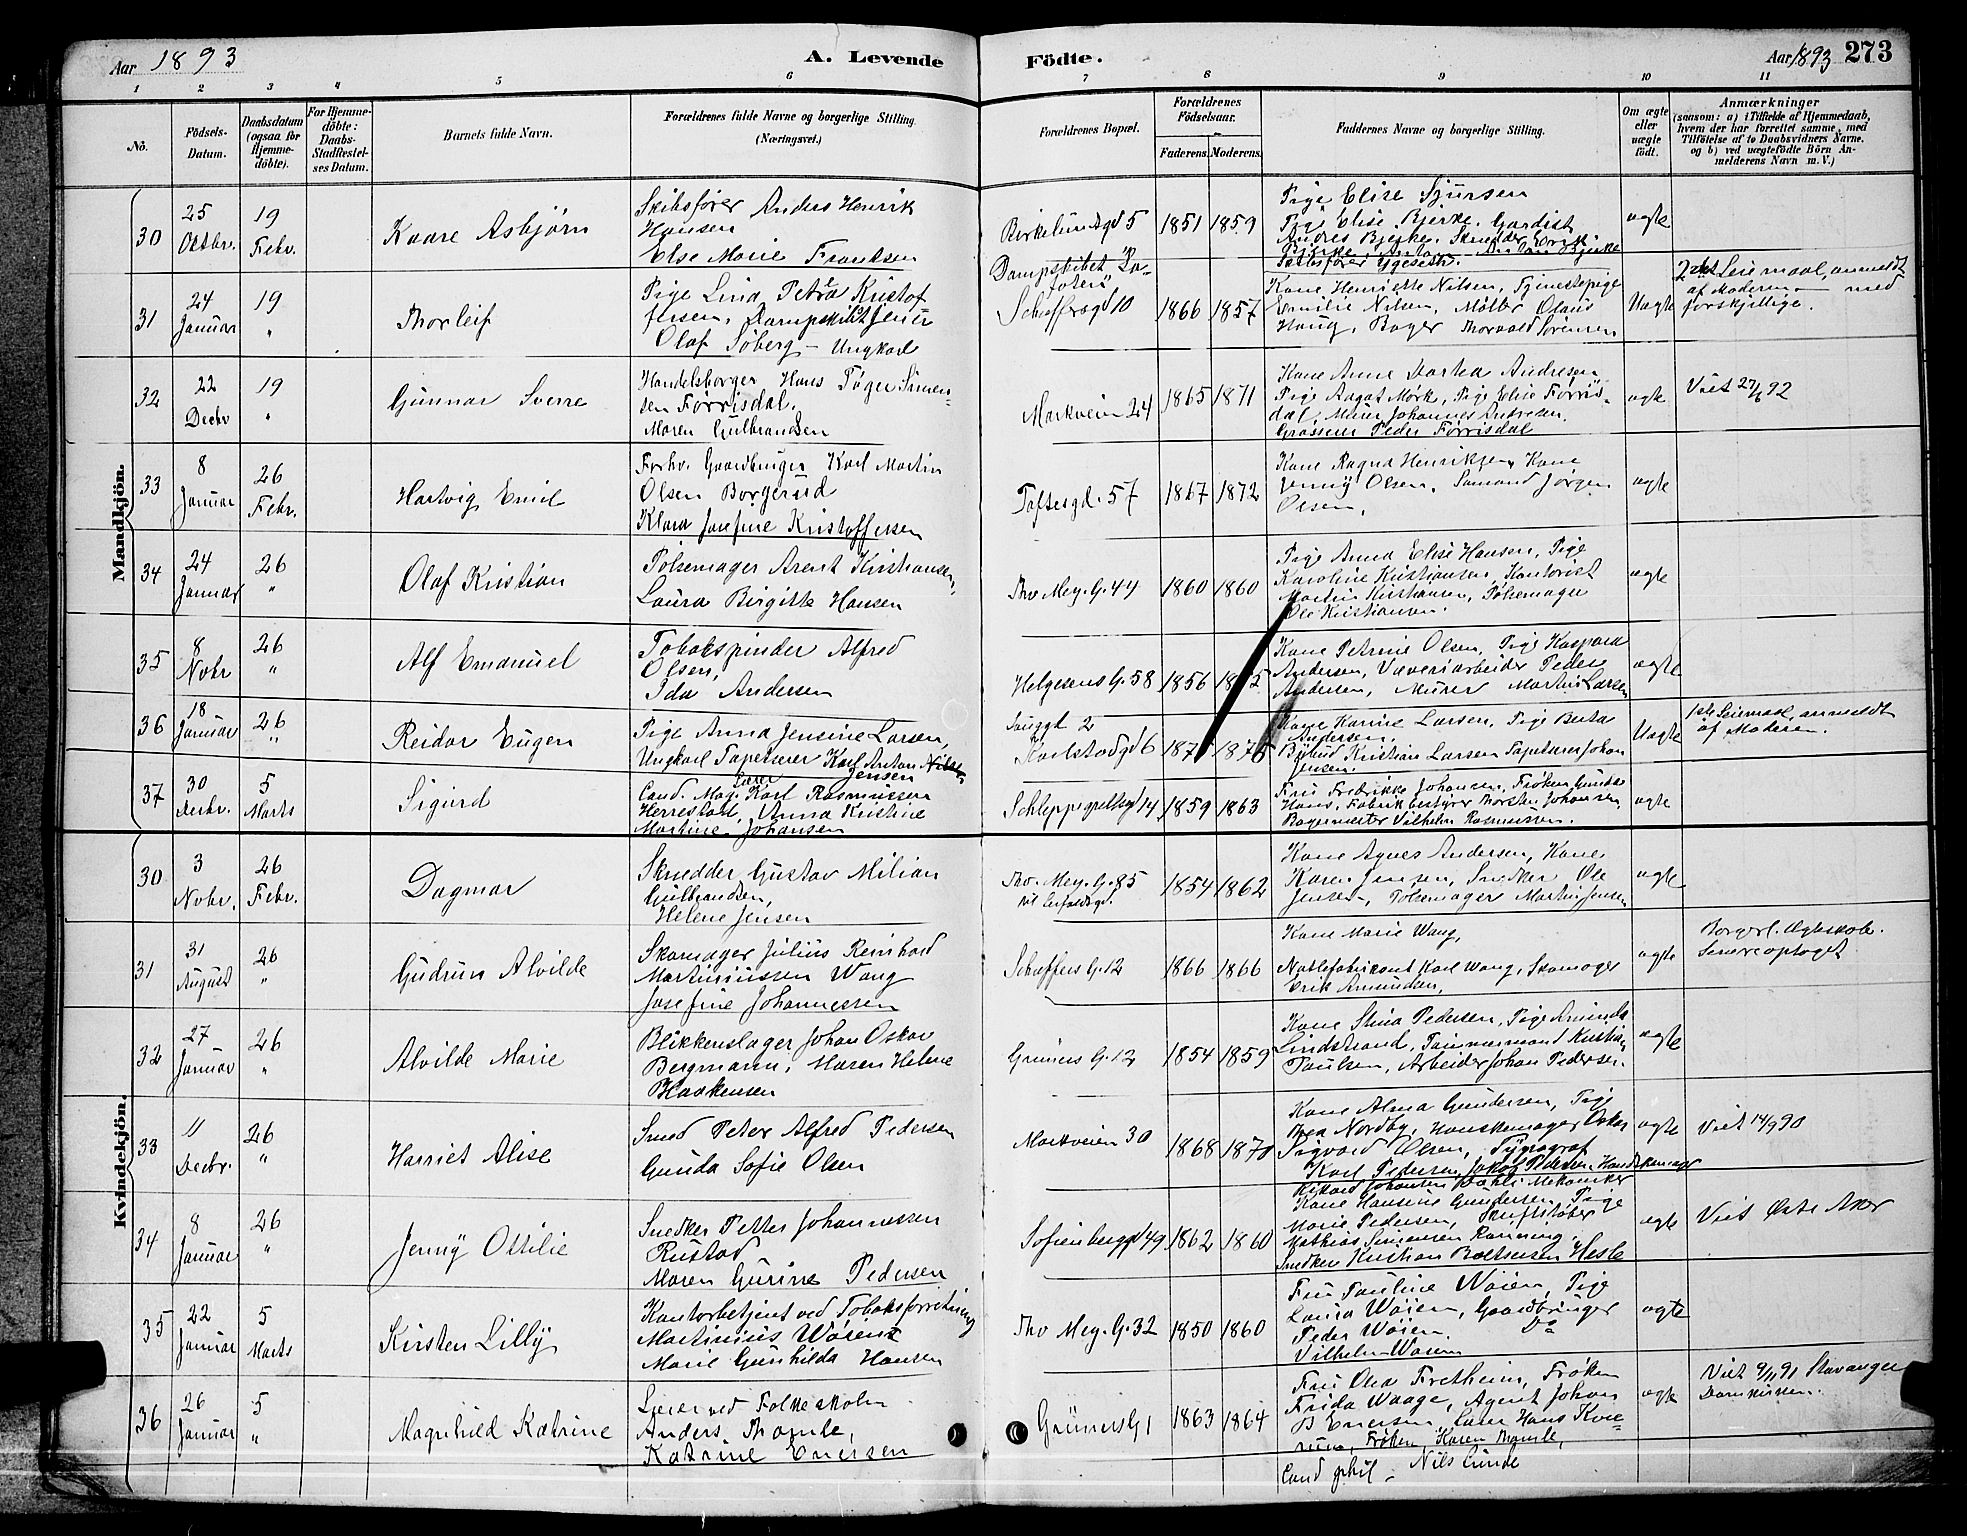 Aar 1893
A. Levende
Födte.
Aar 1893
273
1 2 3 4 5 6 7 8 9 10 11
No.
Födsels-
Datum.
Daabsdatum
(ogsaa for
Hjemme-
döbte).
For Hjemme-
döbte:
Daabs-
Stadfæstel-
ses Datum.
Barnets fulde Navn.
Forældrenes fulde Navne og borgerlige Stilling
(Næringsvei.)
Forældrenes Bopæl.
Forældrenes
Födselsaar.
Faderens. Moderens.
Faddernes Navne og borgerlige Stilling.
Om ægte
eller
uægte
födt.
Anmærkninger
(saasom: a) i Tilfælde af Hjemmedaab,
hvem der har forrettet samme, med
Tilföielse af to Daabsvidners Navne,
og b) ved uægtefödte Börn An-
melderens Navn m. V.)
Mandkjön.
30
25
Octbr.
19
Febr.
Kaare Asbjørn
Skibsfører Anders Henrik
Hansen
Else Marie Frantsen
Birkelundgd 5
1851 1859
Pige Elise Sjursen
Pige Elise Bjerke, Gardist
Andres Bjerke, Skrædder
ægte
31
24
Januar
19
"
Thorleif
Pige Lina Petra Kristof
fersen, Dampskibet
Olaf Soberg – Ungkarl
Dampskibet "Lo-
foten"
Scheffersgd 10
1866 1857
Kone Henriette Nilsen, Tjenestepige
Emilie Nilsen, Maler Olaus
Haug, Bager Thorvald Sørensen
Uægte
2det Leiermaal, anmeldt
af Moderen — med
forskjellige.
32
22
Decbr
19
"
Gunnar Sverre
Handelsborger Hans Tøger Simen-
sen Førrisdal.
Maren Gulbrandsen
Markveien 24
1865 1871
Kone Anne Dorthea Andresen
Pige Aagot Mørk, Pige Elise Førris-
dal, Murer Johannes Andresen.
Grosserer Peder Førrisdal
ægte
Viet 27/6 92
33
8
Januar
26
Febr.
Hartvig Emil
Forhv. Gaardbruger Karl Martin
Olsen Borgerud
Klara Josefine Kristoffersen
Toftesgd. 57
1867 1872
Kone Ragna Henriksen, Kone
Jenny Olsen, Sømand Jørgen
Olsen.
ægte
34
24
Januar
26
"
Olaf Kristian
Pølsemager Arent Kristiansen,
Laura Birgitte Hansen
Thv Mey. G. 44
1860 1860
Pige Anna Elise Hansen, Pige
Karoline Kristiansen, Kontorist
Martin Kristiansen, Pølsemager
Ole Kristiansen.
ægte
35
8
Novbr
26
"
Alf Emanuel
Tobakspinder Alfred
Olsen,
Ida Andersen
Helgesens G. 58
1856
Kone Petrine Olsen, Pige Kaspara
Andersen, Væveriarbeider Peder
Andersen, Murer Martin Larsen
ægte
36
18
Januar
26
"
Reidar Eugen
Pige Anna Jensine Larsen,
Ungkarl Tapetserer Karl Anton Nilsen
Jensen
2
Karlstadgd 6
Kone Karine Larsen, Pige Berta
Andersen.
Bybud Kristian Larsen Tapetserer Johan
Jensen.
Uægte
1ste Leiermaal, anmeldt
af Moderen.
37
30
Decbr.
5
Marts
Sigurd
Lærer
Cand. Mag. Karl Rasmussen
Herrestad, Anna Kristine
Martine Johansen
Schleppegrellsgd 14
1859 1863
Fru Fredrikke Johansen, Frøken Gunda
Hans, Fabrikbestyrer Thorsten Johansen,
Bagermester Vilhelm Rasmussen.
ægte
Kvindekjön.
30
3
Novbr.
26
Febr.
Dagmar
Skrædder Gustav Milian
Gulbrandsen,
Helene Jensen
Thv. Mey. G. 85
1854 1862
Kone Agnes Andersen, Kone
Karen Jensen, Snedker Ole
Jensen, Pølsemager Martin Jensen
ægte
31
31
August
26
"
Gudrun Alvilde
Skomager Julius Reinhard
Martiniussen Wang
Josefine Johannessen
Scheffers G. 12
1866 1866
Kone Marie Wang,
Karl Wang, Skomager
Erik Amundsen,
ægte
Borgerl. Ægteskab.
Senere optaget
32
27
Januar
26
"
Alvilde Marie
Blikkenslager Johan Oskar
Bergmann, Maren Helene
Haakensen
Grüners G. 12
1854 1859
Kone Stina Pedersen, Pige Arminda
Lindstrand, Tømmermand Kristian
Paulsen, Arbeider Johan Pedersen.
ægte
33
11
Decbr.
26
"
Harriet Alise
Smed Peter Alfred Pedersen
Gunda Sofie Olsen
Markveien 30
1868 1870
Kone Alma Gundersen, Pige
Thea Nordby, Hanskemager Oskar
Sigvard Olsen, Typograf
Karl Pedersen, Jakob Pedersen, Handskemager
Rikard Johansen Dahl, Mekaniker
ægte
Viet 14/9 90
34
8
Januar
26
"
Jenny Ottilie
Snedker Petter Johannessen
Rustad
Maren Gurine Pedersen
Sofienberggd 49
1862 1860
Kone Hansine Gundersen, Pige
Marie Pedersen, Skriftstøber
Mathias Simensen Rønning,
Snedker Kristian Baltsersen Hesle
ægte
Viet Østre Aker
35
22
Januar
5
Marts
Kirsten Lilly
Kontorbetjent ved Tobaksforretning
Martinius Wøien
Marie Gunhilda Hansen
Thv Mey. G. 32
1850 1860
Fru Pauline Wøien, Pige
Laura Wøien, Gaardbruger
Peder Wøien. Do
Vilhelm Wøien
ægte
36
26
Januar
5
"
Magnhild Katrine
Lærer ved Folkeskolen
Anders Thomle,
Katrine Enersen
Grüners G 1
1863 1864
Fru Olea Fretheim, Frøken
Frida Waage, Agent Johan
B Enersen, Lærer Hans Kvie-
rum, Frøken Karen Thomle,
Cand phil – Nils Lunde
ægte
Viet 9/11 91 Stavanger
Domkirken.